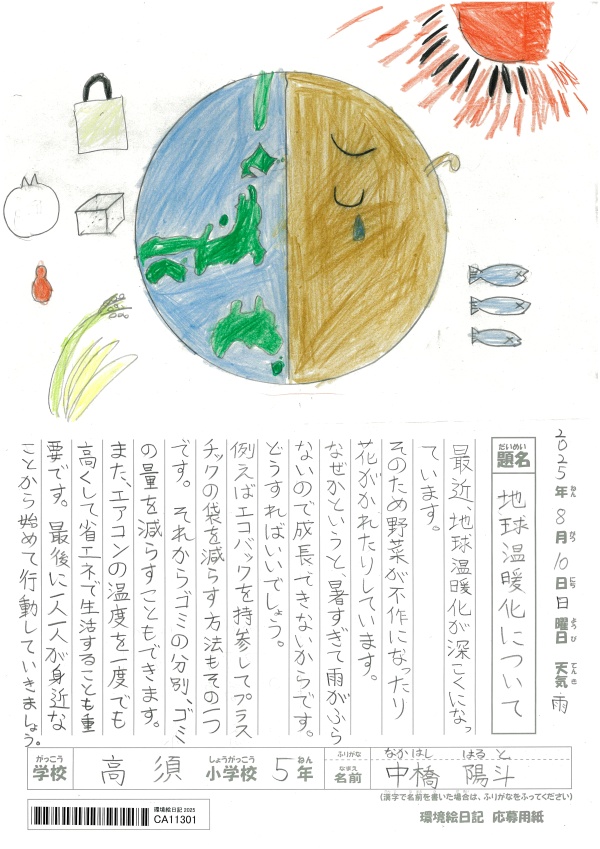 2025年ねん8月がつ10日にち日曜日ようび 天気てんき雨
だいめい
題名 地球温暖化について
最近、地球温暖化が深こくになっ
ています。
そのため野菜が不作になったり
花がかれたりしています。
なぜかというと、暑すぎて雨がふら
ないので成長できないからです。
どうすればいいでしょう。
例えばエコバックを持参してプラス
チックの袋を減らす方法もその一つ
です。それからゴミの分別、ゴミ
の量を減らすこともできます。
また、エアコンの温度を一度でも
高くして省エネで生活することも重
要です。最後に一人一人が身近な
ことから始めて行動していきましょう。
がっこう しょうがっこう ねん ふりがな なかはし はると
学校 高須 小学校 5年 なまえ 名前 中橋 陽斗
(漢字で名前を書いた場合は、ふりがなをふってください)
環境絵日記 応募用紙
環境絵日記 2025
CA11301